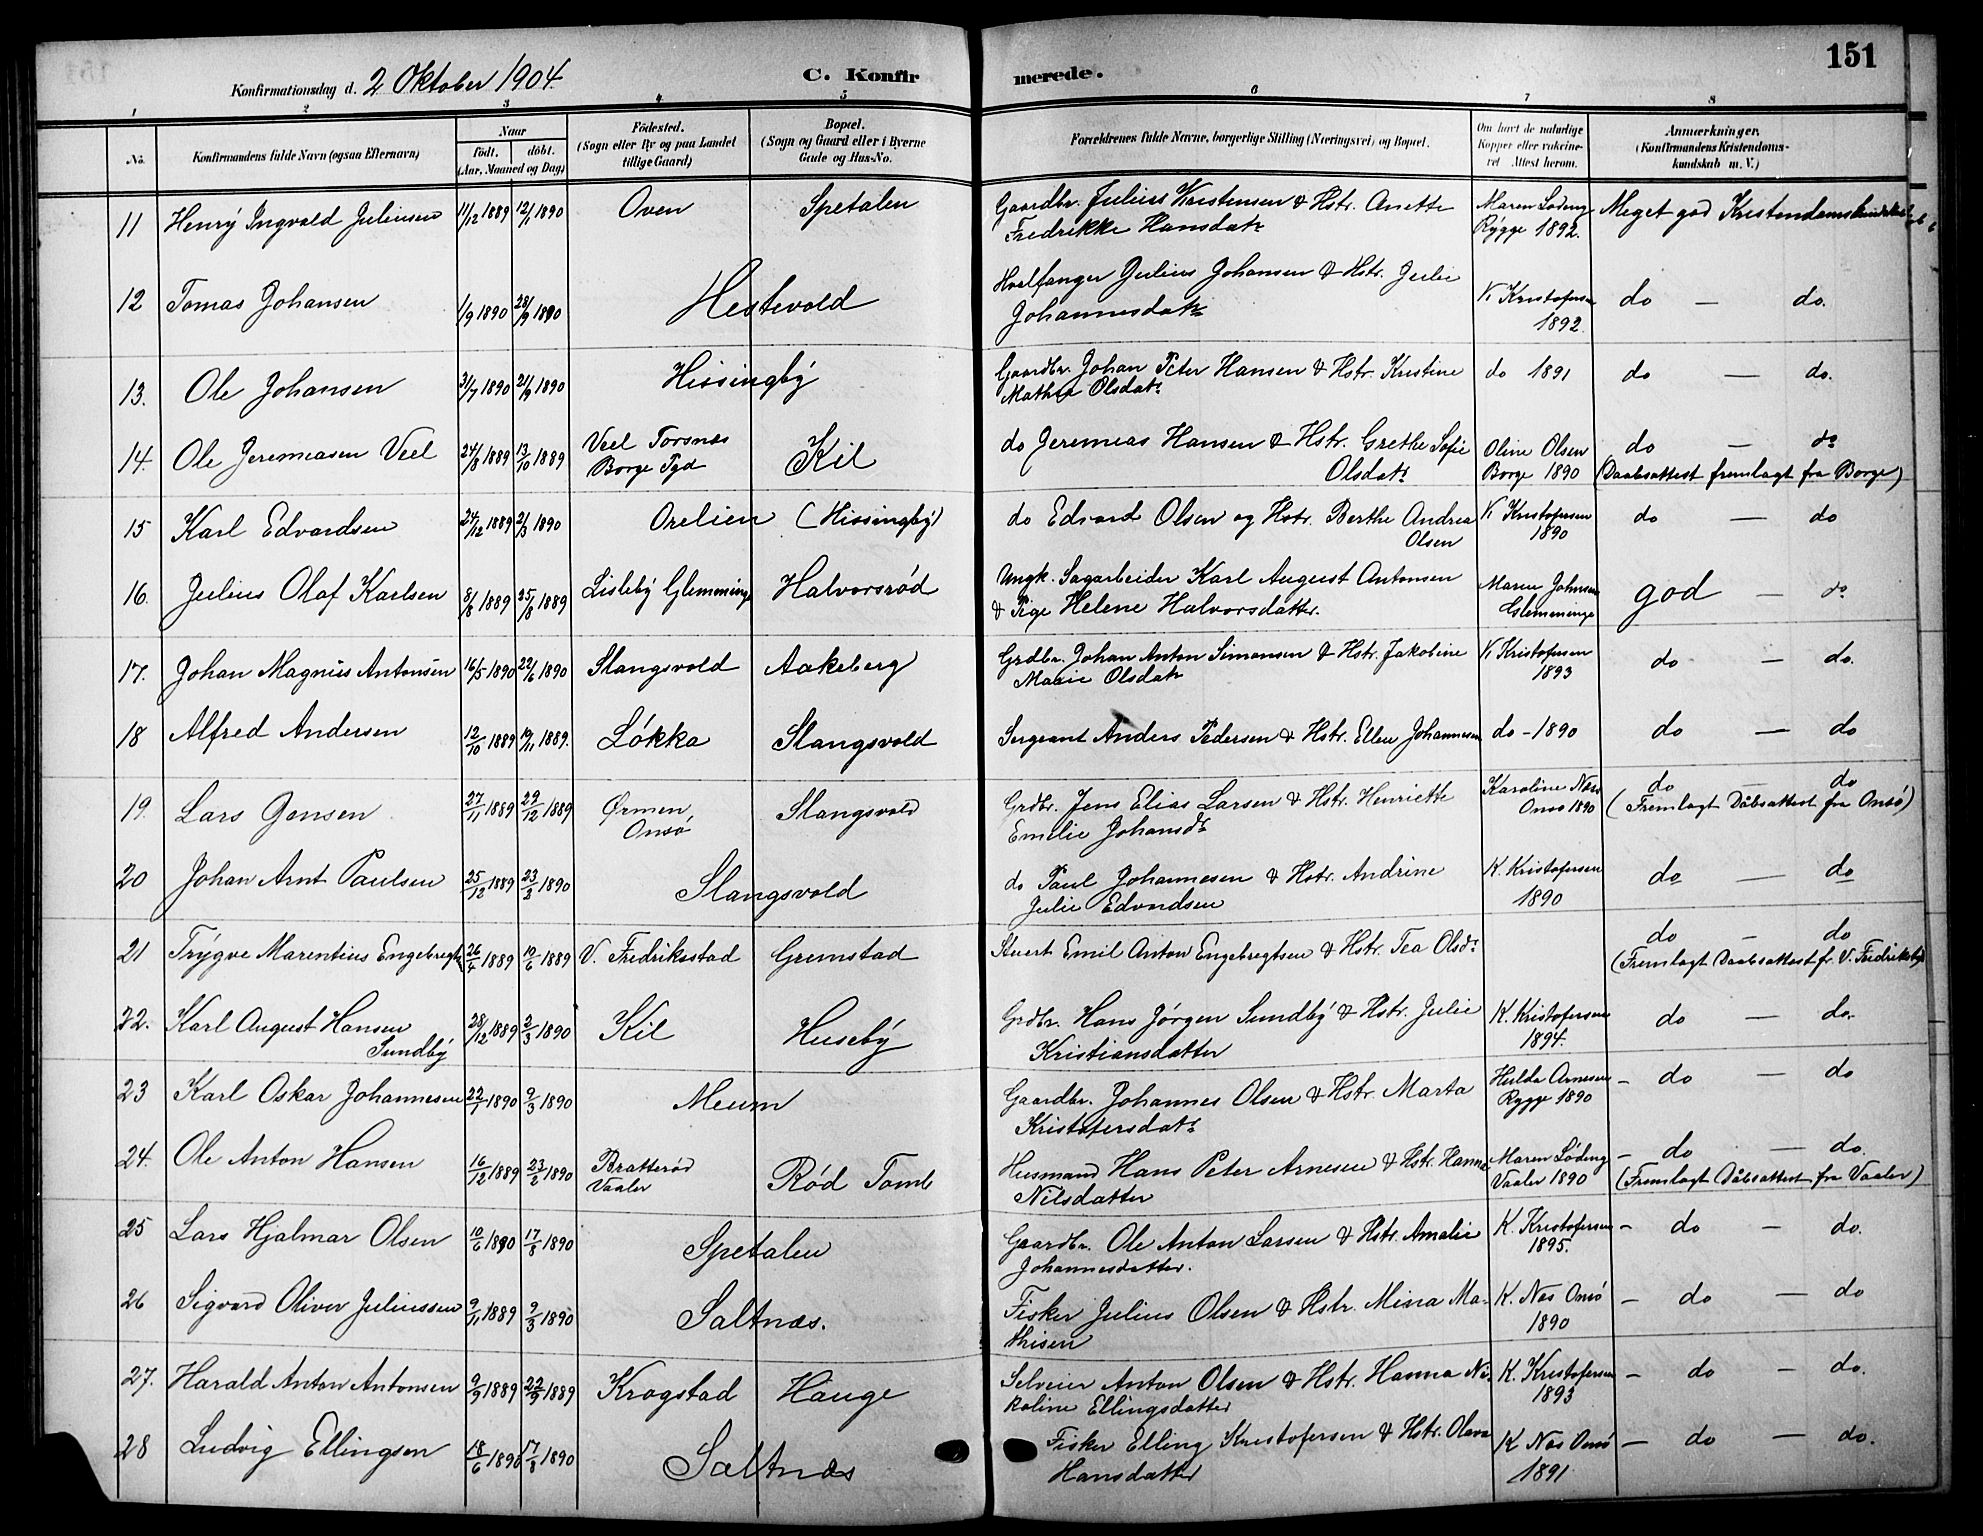 151
Konfirmationsdag d. 2. Oktober 1904.
C. Konfirmerede.
1 2 3 4 5 6 7 8
No. Konfirmandens fulde Navn (ogsaa Efternavn) Naar født. døbt. (Aar, Maaned og Dag) Fødested. (Sogn eller By og paa Landet tillige Gaard) Bopæl. (Sogn og Gaard eller i Byerne Gade og Hus-No. Forældrenes fulde Navne, borgerlige Stilling (Næringsvei) og Bopæl. Om havt de naturlige Kopper eller vakcineret Attest herom. Anmærkninger. (Konfirmandens Kristendomskundskab m. V.)
11 Henry Ingvald Juliusen 11/12 1889 12/1 1890 Oven Spetalen Gaardbr. Julius Karstensen & Hstr. Anette Maren Løding Meget god Kristendomskundskab
Fredrikke Hansdatr Rygge 1892.
12 Tomas Johansen 1/9 1890 28/9 1890 Hestevold Hvalfanger Julius Johansen & Hstr. Julie K Kristofersen do — do.
Johannesdatr 1892.
13. Ole Johansen 31/7 1890 21/9 1890 Hissingby Gaardbr. Johan Peter Hansen & Hstr. Kristine do 1891 do — do.
Mathea Olsdatr
14. Ole Jeremiasen Veel 24/8 1889 13/10 1889 Veel Torsnæs Kil do Jeremias Hansen & Hstr. Grethe Sofie Oline Olsen do — do
Borge Pgd Olsdatr Borge 1890 (Daabsattest fremlagt fra Borge)
15 Karl Edvardsen 24/12 1889 2/3 1890 Orelien (Hissingby) do Edvard Olsen og Hstr. Berthe Andrea K Kristofersen do — do
Olsen 1890
16. Julius Olaf Karlsen 8/8 1889 25/8 1889 Lisleby Glemminge Halvorsrød Ungk. Sagarbeider Karl August Antonsen Maren Johnsen god — do
& Pige Helene Halvorsdatter. Glemminge
17. Johan Magnus Antonsen 16/5 1890 22/6 1890 Slangsvold Aakeberg Grdbr. Johan Anton Simonsen & Hstr. Jakobine K Kristofersen do — do.
Marie Olsdatr 1893
18 Alfred Andersen 12/10 1889 /11 1889. Løkka Slangsvold Sergeant Anders Pedersen & Hstr. Ellen Johannesen do - 1890 do — do
19. Lars Jensen 27/11 1889 29/12 1889 Ørmen, Slangsvold Grdbr. Jens Elias Larsen & Hstr. Henriette Karoline Næss do — do
Onsø Emilie Johansdr Onsø 1890 (Fremlagt Dåbsattest fra Onsø)
20 Johan Arnt Paulsen 25/12 1889 23/2 1890 Slangsvold do Paul Johannesen & Hstr. Andrine K. Kristofersen do — do
Julie Edvardsen 1890
21 Trygve Marentius Engebregts 26/4 1889 10/6 1889 V. Fredriksstad Grimstad Stuert Emil Anton Engebregtsen & Hstr. Tea Olsdr do — do
(Fremlagt Daabsattest fr. V. Fredriksst
22. Karl August Hansen 28/12 1889 2/3 1890 Kil Huseby Grdbr. Hans Jørgen Sundby & Hstr. Julie K. Kristofersen do — do.
Sundby Kristiansdatter 1894.
23 Karl Oskar Johannesen 22/1 1890 9/3 1890 Meum Gaardbr. Johannes Olsen & Hstr. Marta Hulda Arnesen – do — do
Kristofersdatr Rygge 1890
24. Ole Anton Hansen 16/12 1889 23/2 1890 Bratterød Rød Tomb Husmand Hans Peter Arnesen & Hstr. Hanna Maren Løding – do — do.
Vaaler Nilsdatter Vaaler 1890 (Fremlagt Dåbsattest fra Vaaler)
25 Lars Hjalmar Olsen 10/6 1890 17/8 1890 Spetalen Gaardbr. Ole Anton Larsen & Hstr. Amalie K. Kristofersen – do – do.
Johannesdatter. 1895.
26 Sigvard Oliver Juliussen 9/11 1889 9/3 1890 Saltnæs. Fisker Julius Olsen & Hstr. Mina Ma- K. Næs Onsø – do — do
thisen 1890
27. Harald Anton Antonsen 9/9 1889 22/9 1889 Krogstad Hauge Selveier Anton Olsen & Hstr. Hanna Ni- K. Kristofersen – do – do.
koline Ellingsdatter 1893
28 Ludvig Ellingsen 18/6 1890 17/8 1890 Saltnæs Fisker Elling Kristofersen & Hstr. Olava K Næs Onsø – do — do.
Hansdatter 1891